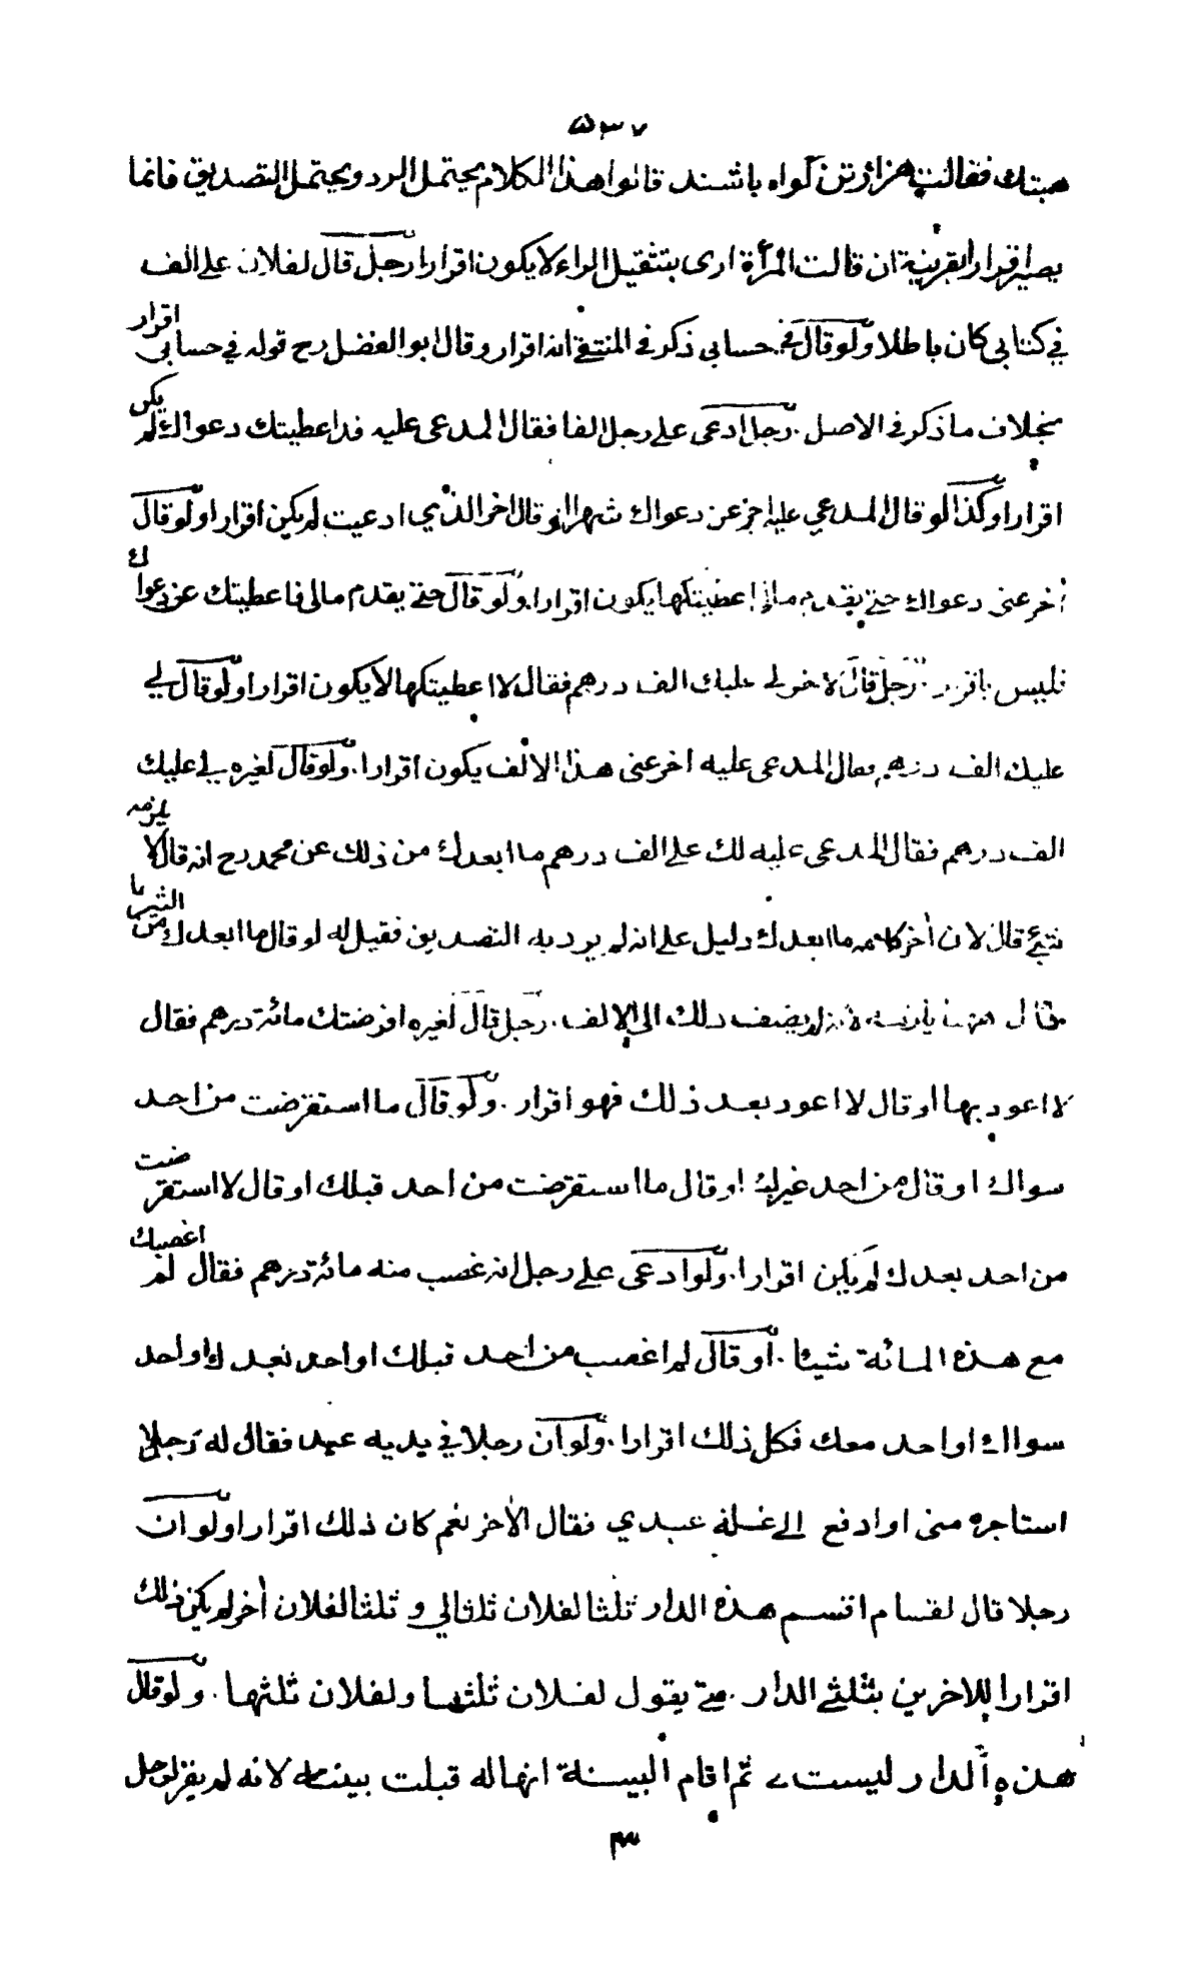 ٥٣٧
هبتك فقالت هزار تن كواه باشند قالوا هذا الكلام يحتمل الرد ويحتمل التصديق فانما
يصير اقرارا بقرينة ان قالت المرأة ارى بتثقيل الراء لا يكون اقرارا رجل قال لفلان على الف
في كتابي كان باطلا ولو قال في حسابي ذكر في المنتقى انه اقرار وقال ابو الفضل رح قوله في حسابي اقرار
بخلاف ما ذكر في الاصل . رجل ادعى على رجل الفا فقال المدعى عليه قد اعطيتك دعواك لم يكن
اقرارا وكذا لو قال المدعي عليه اخر عن دعواك شهرا او قال اخر الذي ادعيت لم يكن اقرارا ولو قال
اخر عنى دعواك حتى يقدم مالي اعطيتكها يكون اقرارا . ولو قال حتى يقدم مالى فاعطيتك عن دعواك
فليس باقرار . رجل قال لاخر لي عليك الف درهم فقال لا اعطيتكها لا يكون اقرارا ولو قال لي
عليك الف درهم فقال المدعى عليه اخر عنى هذا الالف يكون اقرارا . ولو قال لغيره لي عليك
الف درهم فقال المدعى عليه لك على الف درهم ما ابعدك من ذلك عن محمد رح انه قال لا يلزمه
شئ قال لان اخر كلامه ما ابعدك دليل على انه لم يرد به التصديق فقيل له لو قال ما ابعدك من الثريا
قال لانه لم يضف ذلك الى الالف . رجل قال لغيره اقرضتك مائة درهم فقال
لا اعود بها او قال لا اعود بعد ذلك فهو اقرار . ولو قال ما استقرضت من احد
سواك او قال من احد غيرك او قال ما استقرضت من احد قبلك او قال لا استقرضت
من احد بعدك لم يكن اقرارا . ولو ادعى على رجل انه غصب منه مائة درهم فقال لم اغصبك
مع هذه المائة شيئا . او قال لم اغصب من احد قبلك او احد بعدك او احد
سواك او احد معك فكل ذلك اقرارا . ولو ان رجلا في يديه عبد فقال له رجل
استاجره منى او ادفع الي غلة عبدي فقال الاخر نعم كان ذلك اقرارا ولو ان
رجلا قال لقسام اقسم هذه الدار ثلثا لفلان ثلثا لي و ثلثا لفلان اخر لم يكن ذلك
اقرارا للاخرين بثلثي الدار . حتى يقول لفلان ثلثها ولفلان ثلثها . ولو قال
هذه الدار ليست لي ثم اقام البينة انها له قبلت بينته لانه لم يقر لرجل